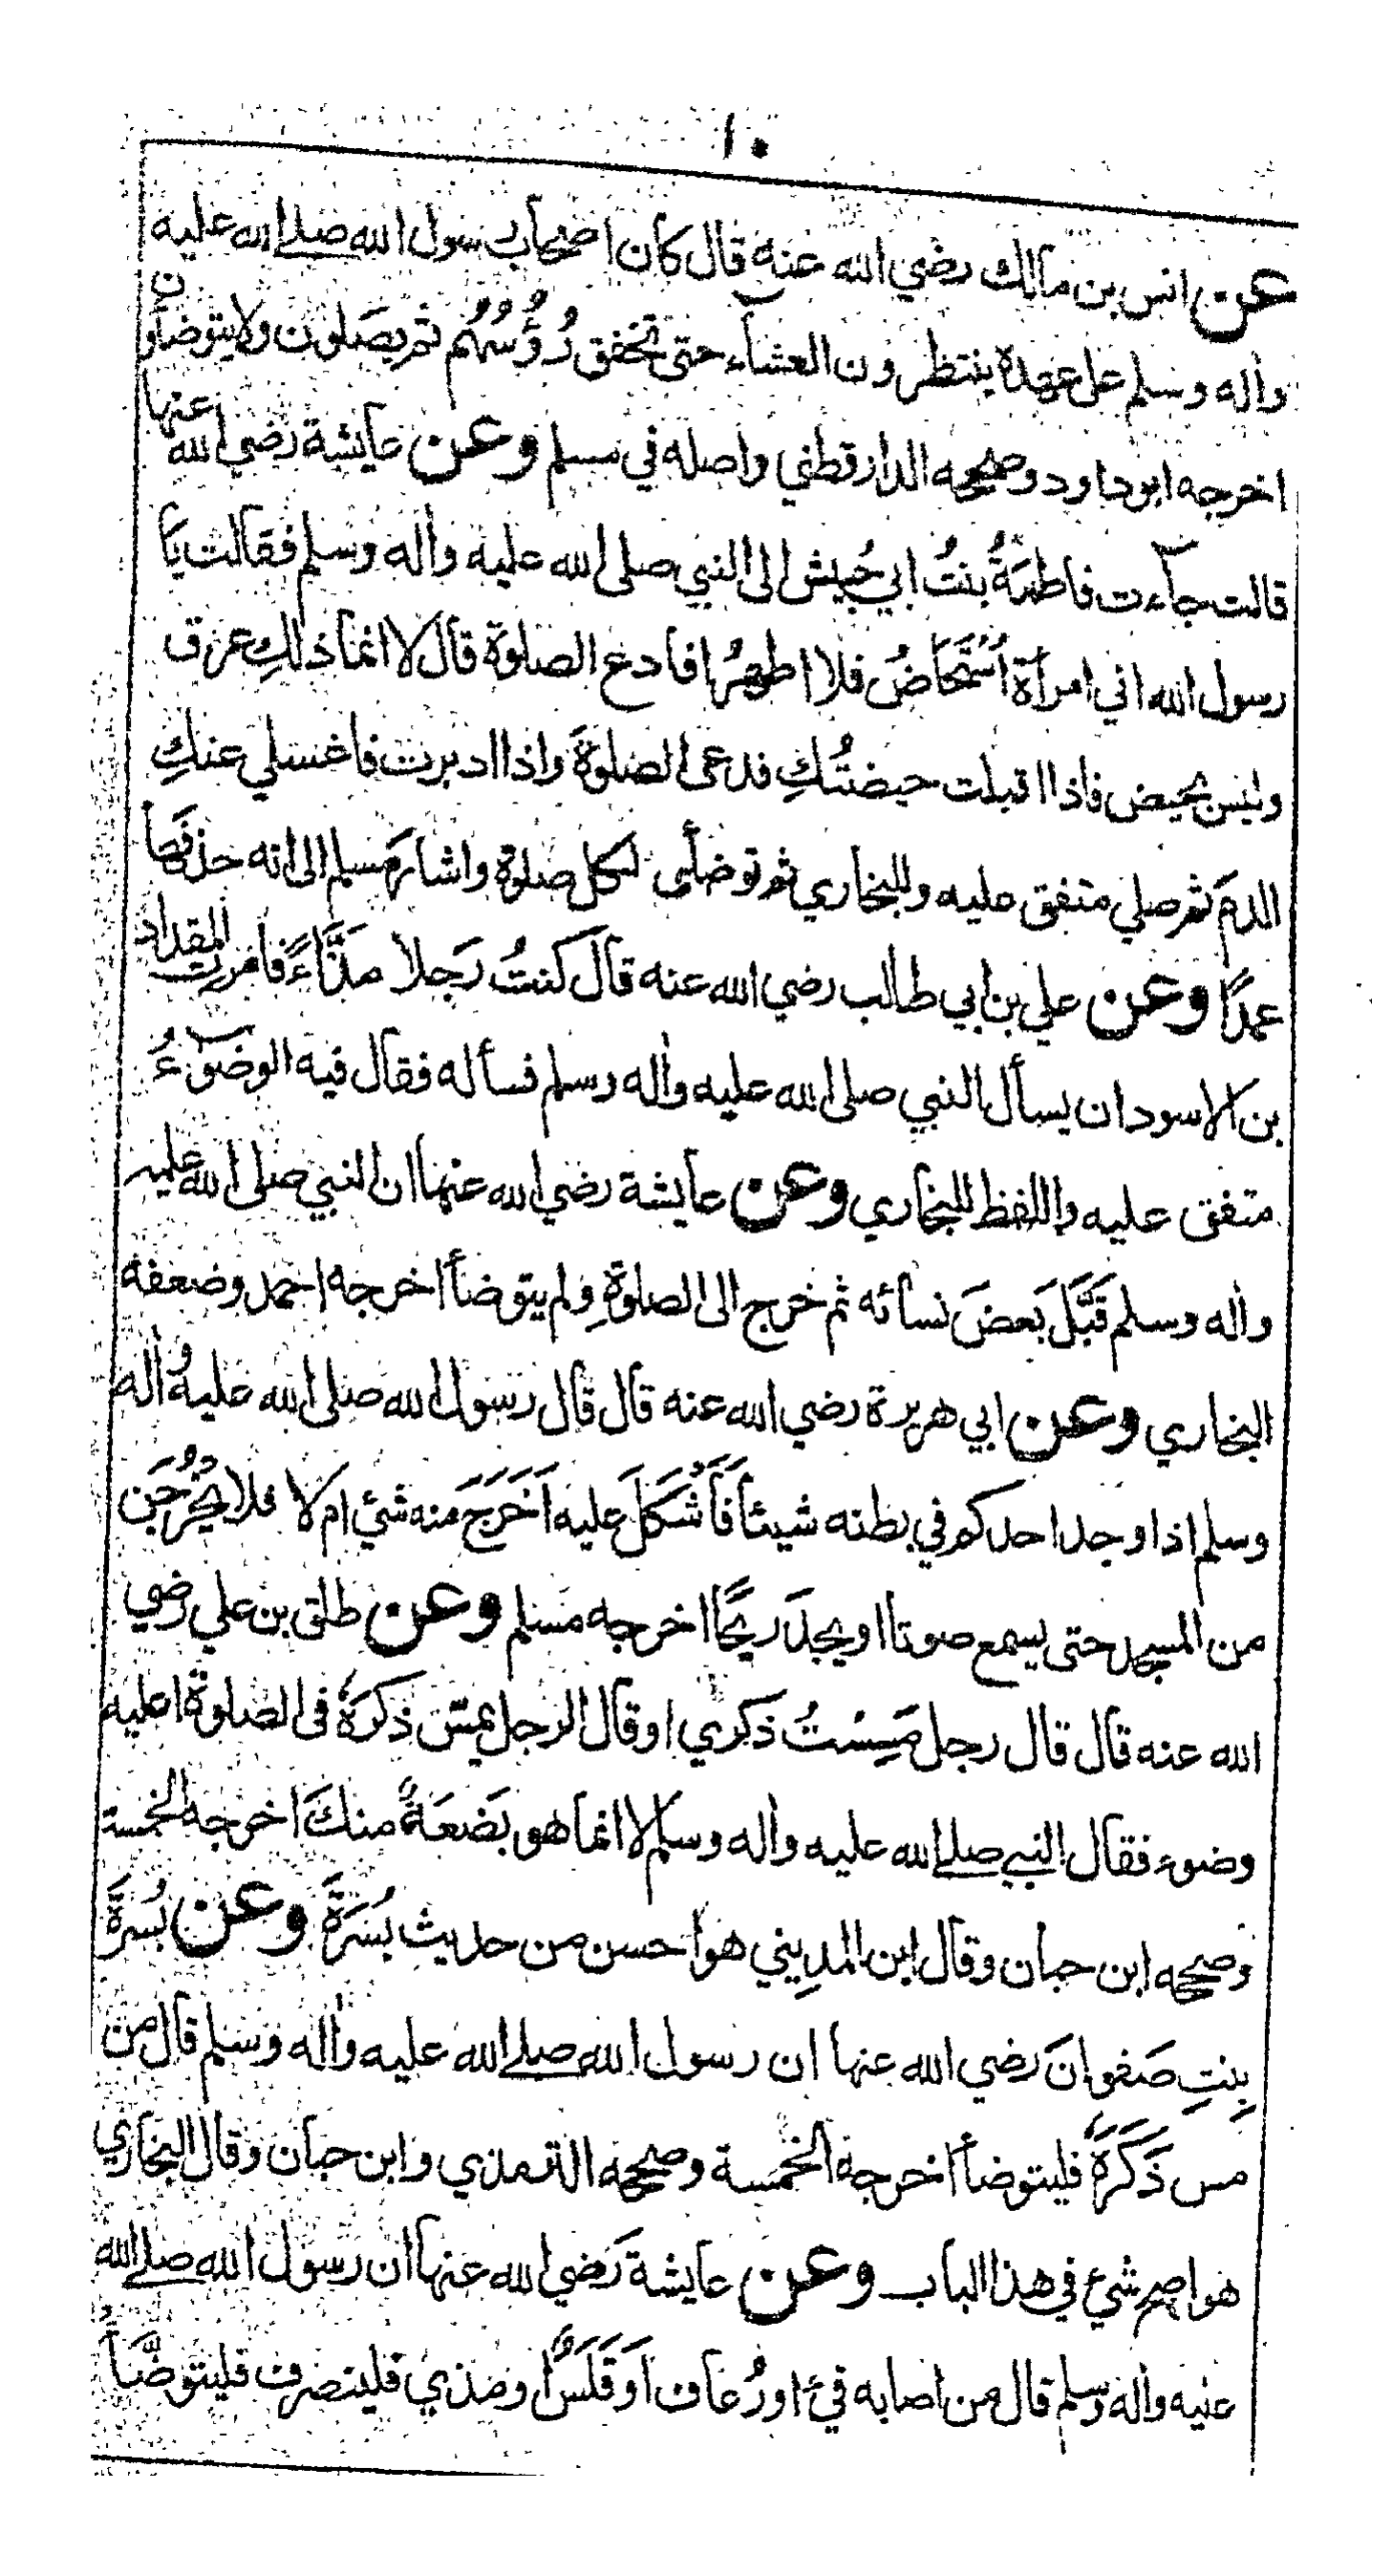 ١٠
عن انس بن مالك رضي الله عنه قال كان اصحاب رسول الله صلے الله عليه
واٰله وسلم على عهده ينتظرون العشآء حتى تخفق رُؤُسُهُم ثم يصَلون ولا يتوضأون
اخرجه ابو داود وصححه الدارقطني واصله في مسلم وعن عايشة رضي الله عنها
قالت جآءت فاطمةُ بنتُ ابي حُبيش الى النبي صلى الله عليه واٰله وسلم فقالت يا
رسول الله اني امرأة اُسْتَحَاضُ فلا اطهرُ افادع الصلوة قال لا انما ذلكِ عرق
وليس بحيض فاذا اقبلت حيضتُكِ فدعى الصلوةَ واذا ادبرت فاغسلي عنكِ
الدمَ ثم صلي متفق عليه وللبخاري ثم توضأى لكل صلوة واشار مسلم الى انه حذفها
عمدًا وعن علي بن ابي طالب رضي الله عنه قال كنتُ رَجلا مذَّاءً فامرت المقداد
بن الاسود ان يسأل النبي صلى الله عليه واٰله وسلم فسأله فقال فيه الوضوٓءُ
متفق عليه واللفظ للبخاري وعن عايشة رضي الله عنها ان النبي صلى الله عليه
واٰله وسلم قَبَّلَ بَعضَ نسائه ثم خرج الى الصلوةِ ولم يتوضأ اخرجه احمد وضعفه
البخاري وعن ابي هريرة رضي الله عنه قال قال رسول الله صلى الله عليه واٰله
وسلم اذا وجد احدكم في بطنه شيئاً فَأَشْكَلَ عليه اَخَرَجَ منه شئ ام لا فلا يَخْرُجَن
من المسجد حتى يسمع صوتا او يجدَ ريحًا اخرجه مسلم وعن طلق بن علي رضي
الله عنه قال قال رجل مَسِسْتُ ذكري او قال الرجل يمسّ ذكرَهٗ فى الصلوة اعليه
وضوء فقال النبي صلے الله عليه واٰله وسلم لا انما هو بَضعَةٌ منكَ اخرجه الخمسة
وصححه ابن حبان وقال ابن المدِيني هو احسن من حديث بُسْرَةَ وعن بُسرَةَ
بِنتِ صَفوانَ رضي الله عنها ان رسول الله صلے الله عليه واٰله وسلم قال من
مس ذَكَرَهٗ فليتوضأ اخرجه الخمسة وصححه الترمذي وابن حبان وقال البخاري
هو اصح شيءٍ في هذا الباب وعن عايشة رَضي الله عنها ان رسول الله صلے الله
عليه واٰله وسلم قال من اصابه قئ او رُعاف اَو قَلَسٌ او مذي فلينصرف فليتوضَّأْ